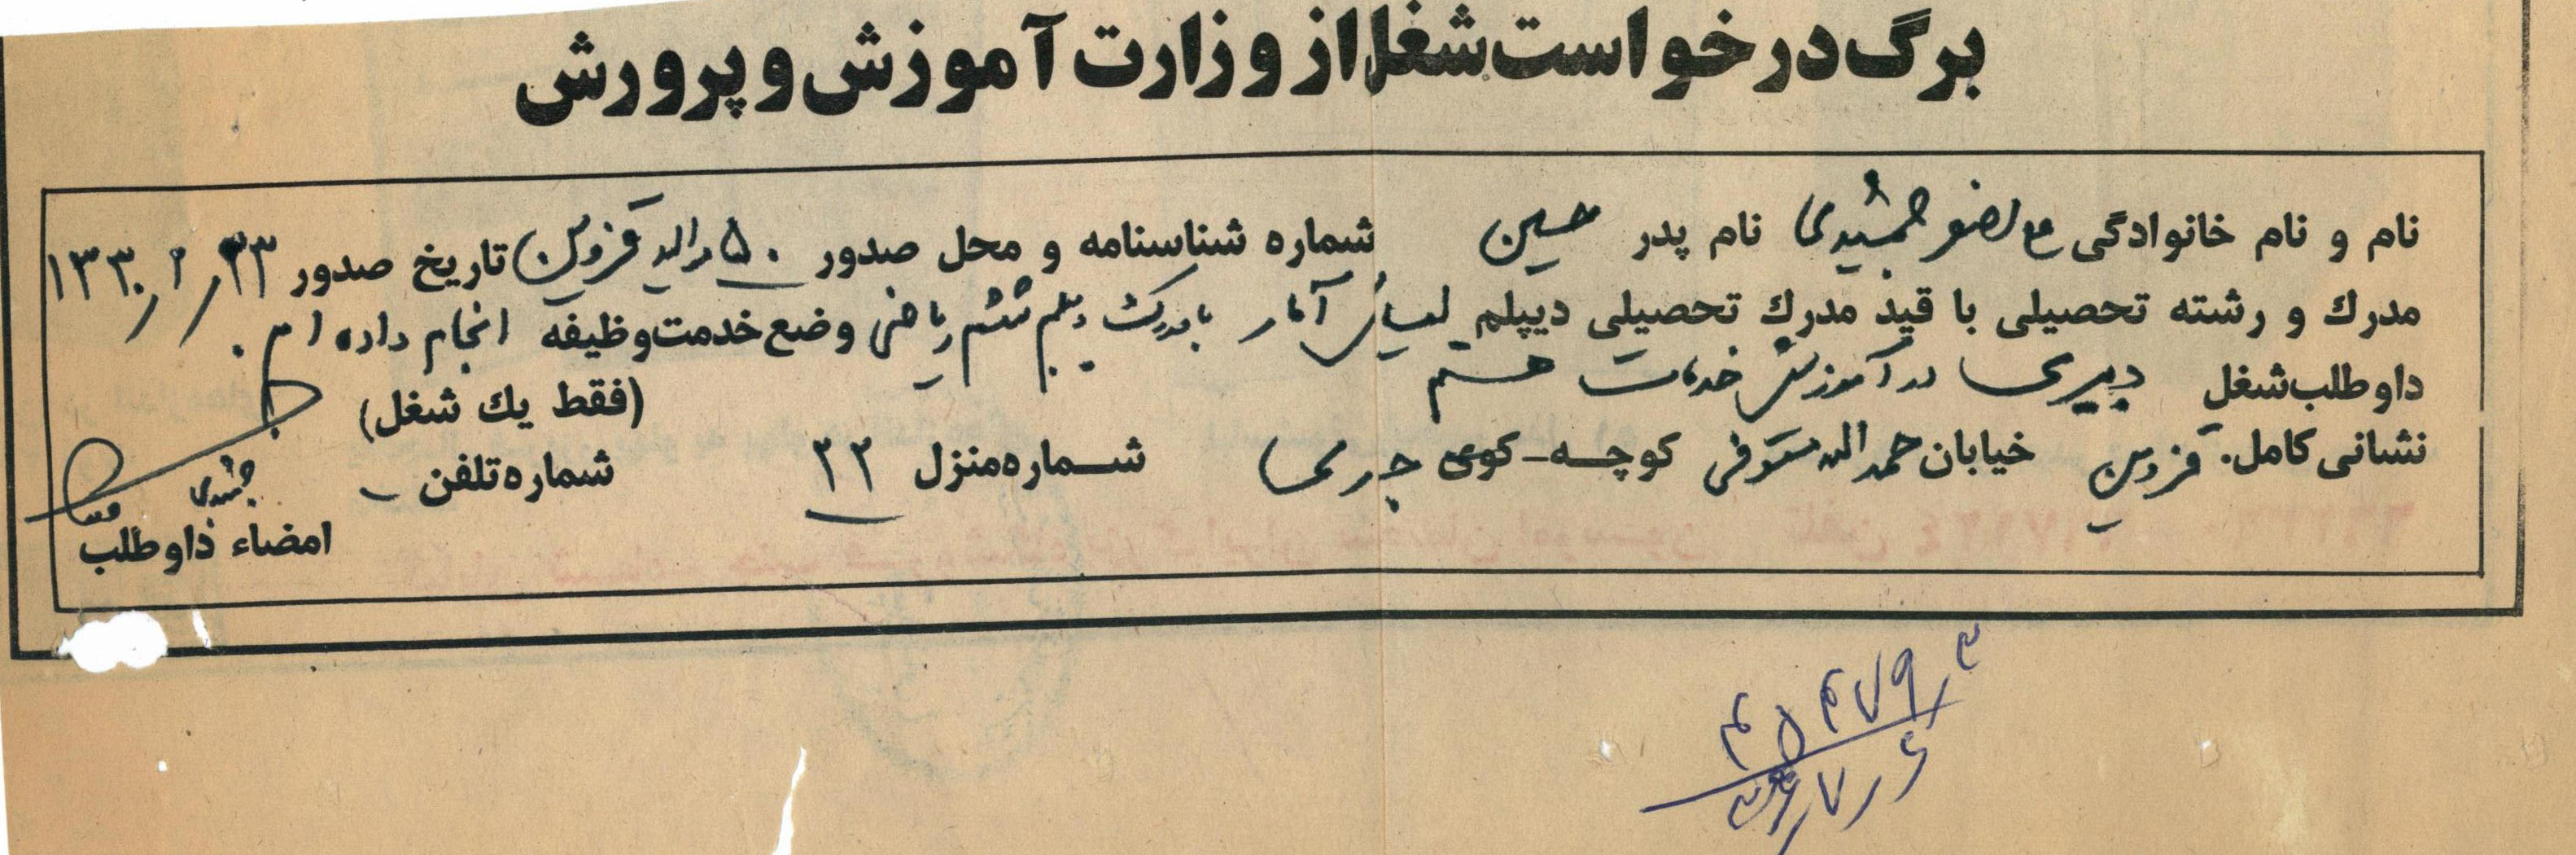 برگ درخواست شغل از وزارت آموزش و پرورش
نام و نام خانوادگی جمشیدی نام پدر حسین شماره شناسنامه و محل صدور ۵۰ قزوین تاریخ صدور ۱۳۳۰
مدرك و رشته تحصیلی با قید مدرك تحصیلی دیپلم لیسانس آمار با مدرک دیپلم ششم ریاضی وضع خدمت وظیفه انجام داده ام.
داوطلب شغل دبیری در آموزش خدمات هستم (فقط يك شغل)
نشانی کامل. قزوین خیابان حمدالله مستوفی کوچه-کوی شماره منزل ۲۲ شماره تلفن -
جمشیدی
امضاء داوطلب